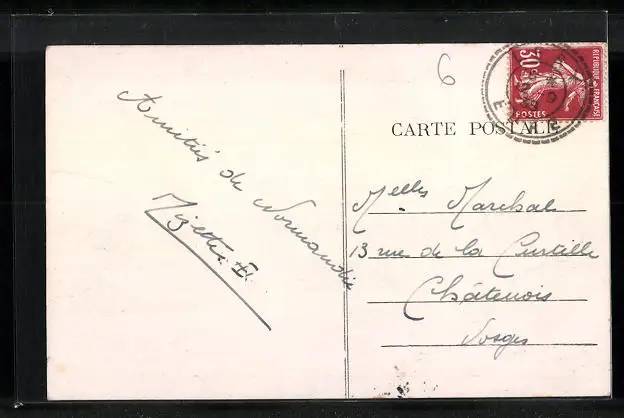 6
30c
REPUBLIQUE FRANCAISE
POSTES
CARTE POSTALE
Amitiés de Normandie
Melles Marchal
13 rue de la
Châtenois
Vosges